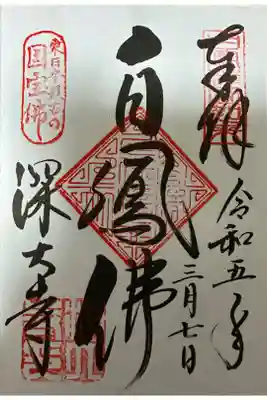 奉拝
令和五年
三月七日
白鳳佛
東日本唯一の
国宝佛
深大寺